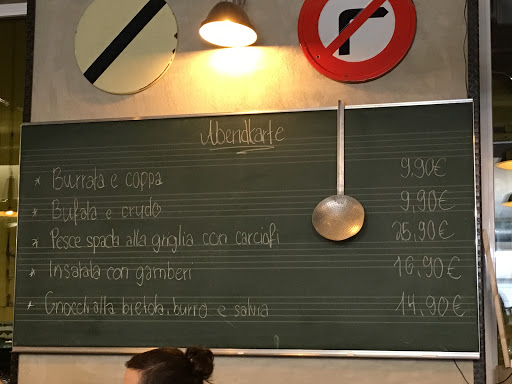 Abendkarte
* Burrata e coppa 9,90€
* Bufala e crudo 9,90€
* Pesce spada alla griglia con carciofi 25,90€
* Insalata con gamberi 16,90€
* Gnocchi alla bietola, burro e salvia 14,90€